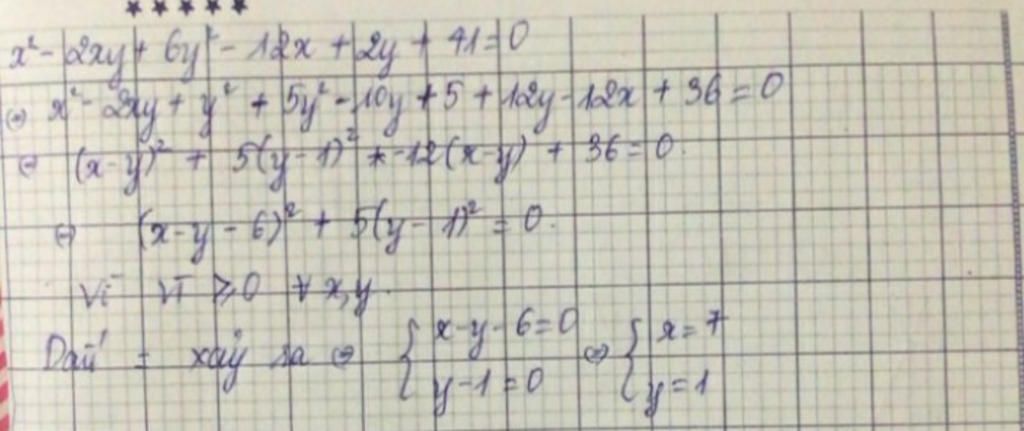 x² - 2xy + 6y² - 12x + 2y + 41 = 0
⇔ x² - 2xy + y² + 5y² - 10y + 5 + 12y - 12x + 36 = 0
⇔ (x-y)² + 5(y-1)² + -12(x-y) + 36 = 0.
⇔ (x-y-6)² + 5(y-1)² = 0.
Vì VT ≥ 0 ∀ x,y.
Dấu = xảy ra ⇔ { x-y-6=0 ⇔ { x=7
y-1=0 y=1